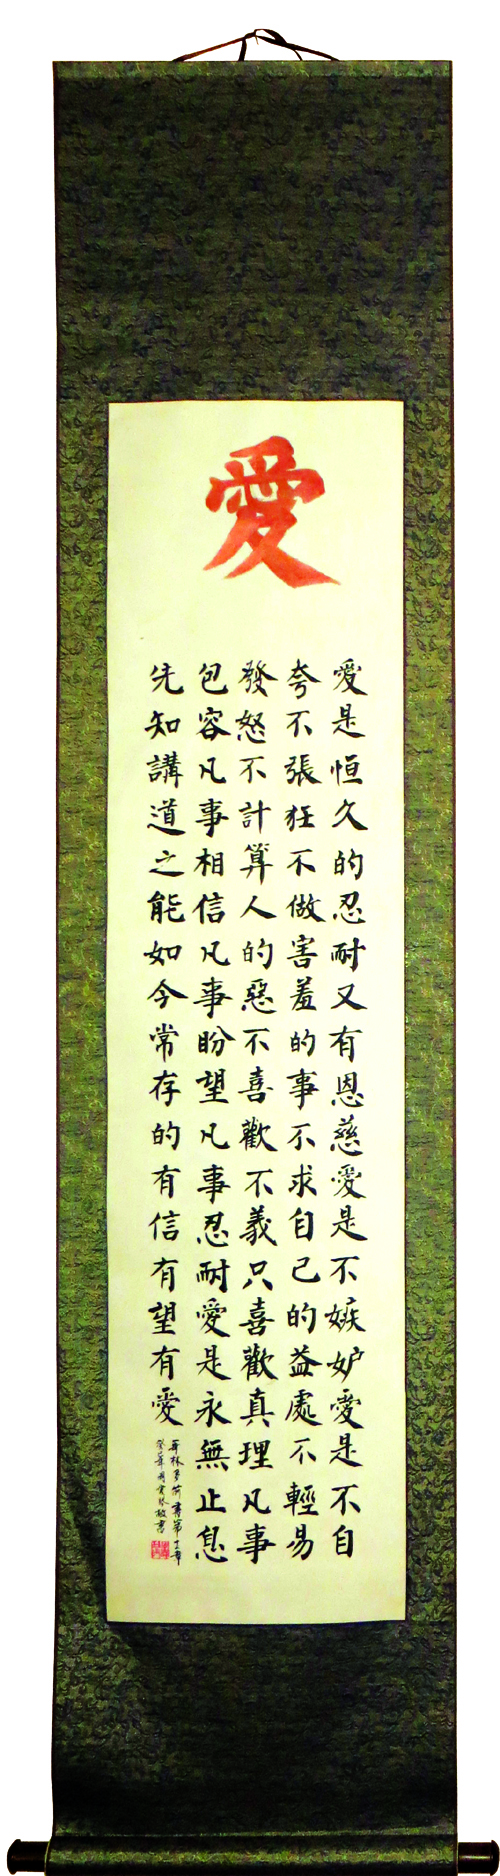 愛
愛是恒久的忍耐又有恩慈愛是不嫉妒愛是不自
夸不張狂不做害羞的事不求自己的益處不輕易
發怒不計算人的惡不喜歡不義只喜歡真理凡事
包容凡事相信凡事盼望凡事忍耐愛是永無止息
先知講道之能如今常存的有信有望有愛
哥林多前書第十三章
敬書